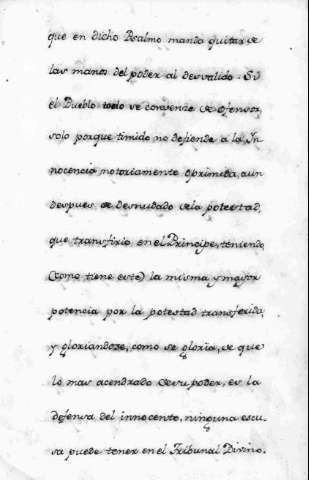 que en dicho Psalmo manda quitar de
las manos del poder al desvalido. Si
el Pueblo todo se convence de ofensor,
solo porque timido no defiende a la In-
nocencia notoriamente oprimida, aun
despues de desnudado de la potestad,
que transfirio en el Principe, teniendo
(como tiene este) la misma y mayor
potencia por la potestad transferida,
y gloriandose, como se gloria, de que
lo mas acendrado de su poder, es la
defensa del innocente, ninguna escu-
sa puede tener en el Tribunal Divino.